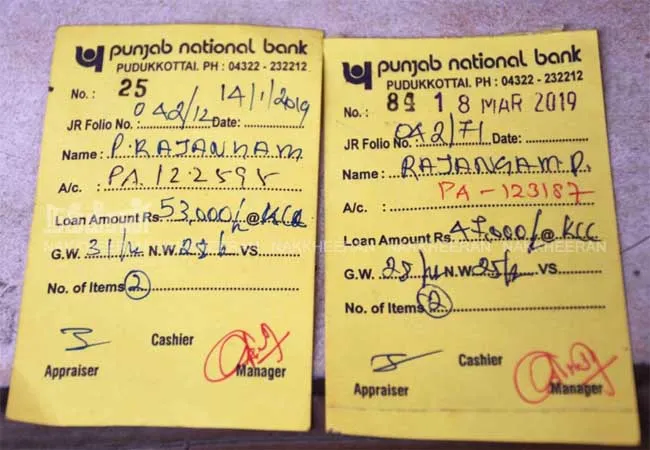 punjab national bank
PUDUKKOTTAI. PH : 04322 - 232212
No. : 25
JR Folio No. : 042/12 Date: 14/1/2019
Name : P. RAJANGAM
A/c. : PA. 122595
Loan Amount Rs. 53,000/- @ KCC
G.W. 31 N.W. 28 VS
No. of Items 2
Cashier
Appraiser Manager
punjab national bank
PUDUKKOTTAI. PH : 04322 - 232212
No. : 89 18 MAR 2019
JR Folio No. : 042/71 Date:
Name : RAJANGAM P.
A/c. : PA - 123187
Loan Amount Rs. 47,000/- @ KCC
G.W. 28 N.W. 25 VS
No. of Items 2
Cashier
Appraiser Manager
NAKKHEERAN NAKKHEERAN